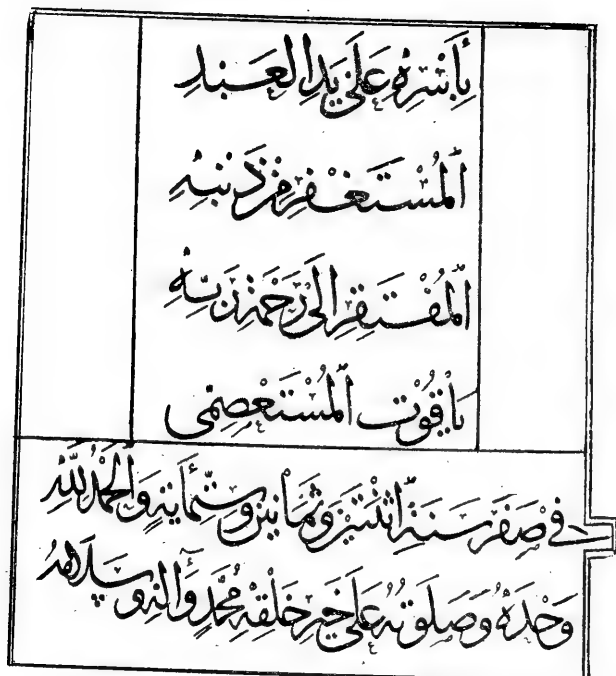 بِأَسْرِهِ عَلَى يَدِ الْعَبْدِ
الْمُسْتَغْفِرِ مِنْ ذَنْبِهِ
الْمُفْتَقِرِ إِلَى رَحْمَةِ رَبِّهِ
يَاقُوْتِ الْمُسْتَعْصِمِي
فِي صَفَرَ سَنَةَ اثْنَتَيْنِ وَثَمَانِينَ وَسِتَّمِأَيَةٍ وَالْحَمْدُ لِلّٰهِ
وَحْدَهُ وَصَلَوتُهُ عَلَى خَيْرِ خَلْقِهِ مُحَمَّدٍ وَآلِهِ وَسَلَامُهُ